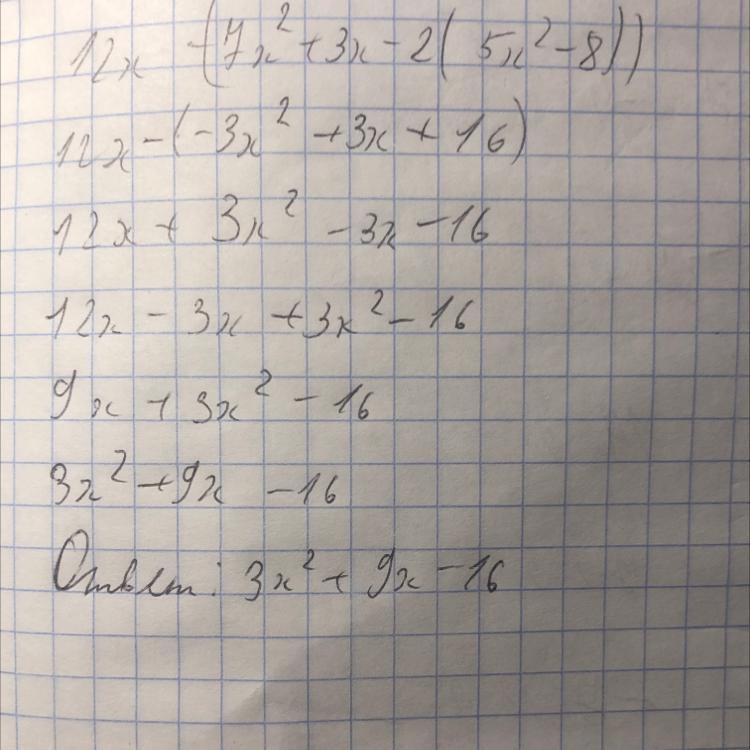 12x - (7x² + 3x - 2( 5x² - 8))
12x - (-3x² + 3x + 16)
12x + 3x² - 3x - 16
12x - 3x + 3x² - 16
9x + 3x² - 16
3x² + 9x - 16
Ответ: 3x² + 9x - 16